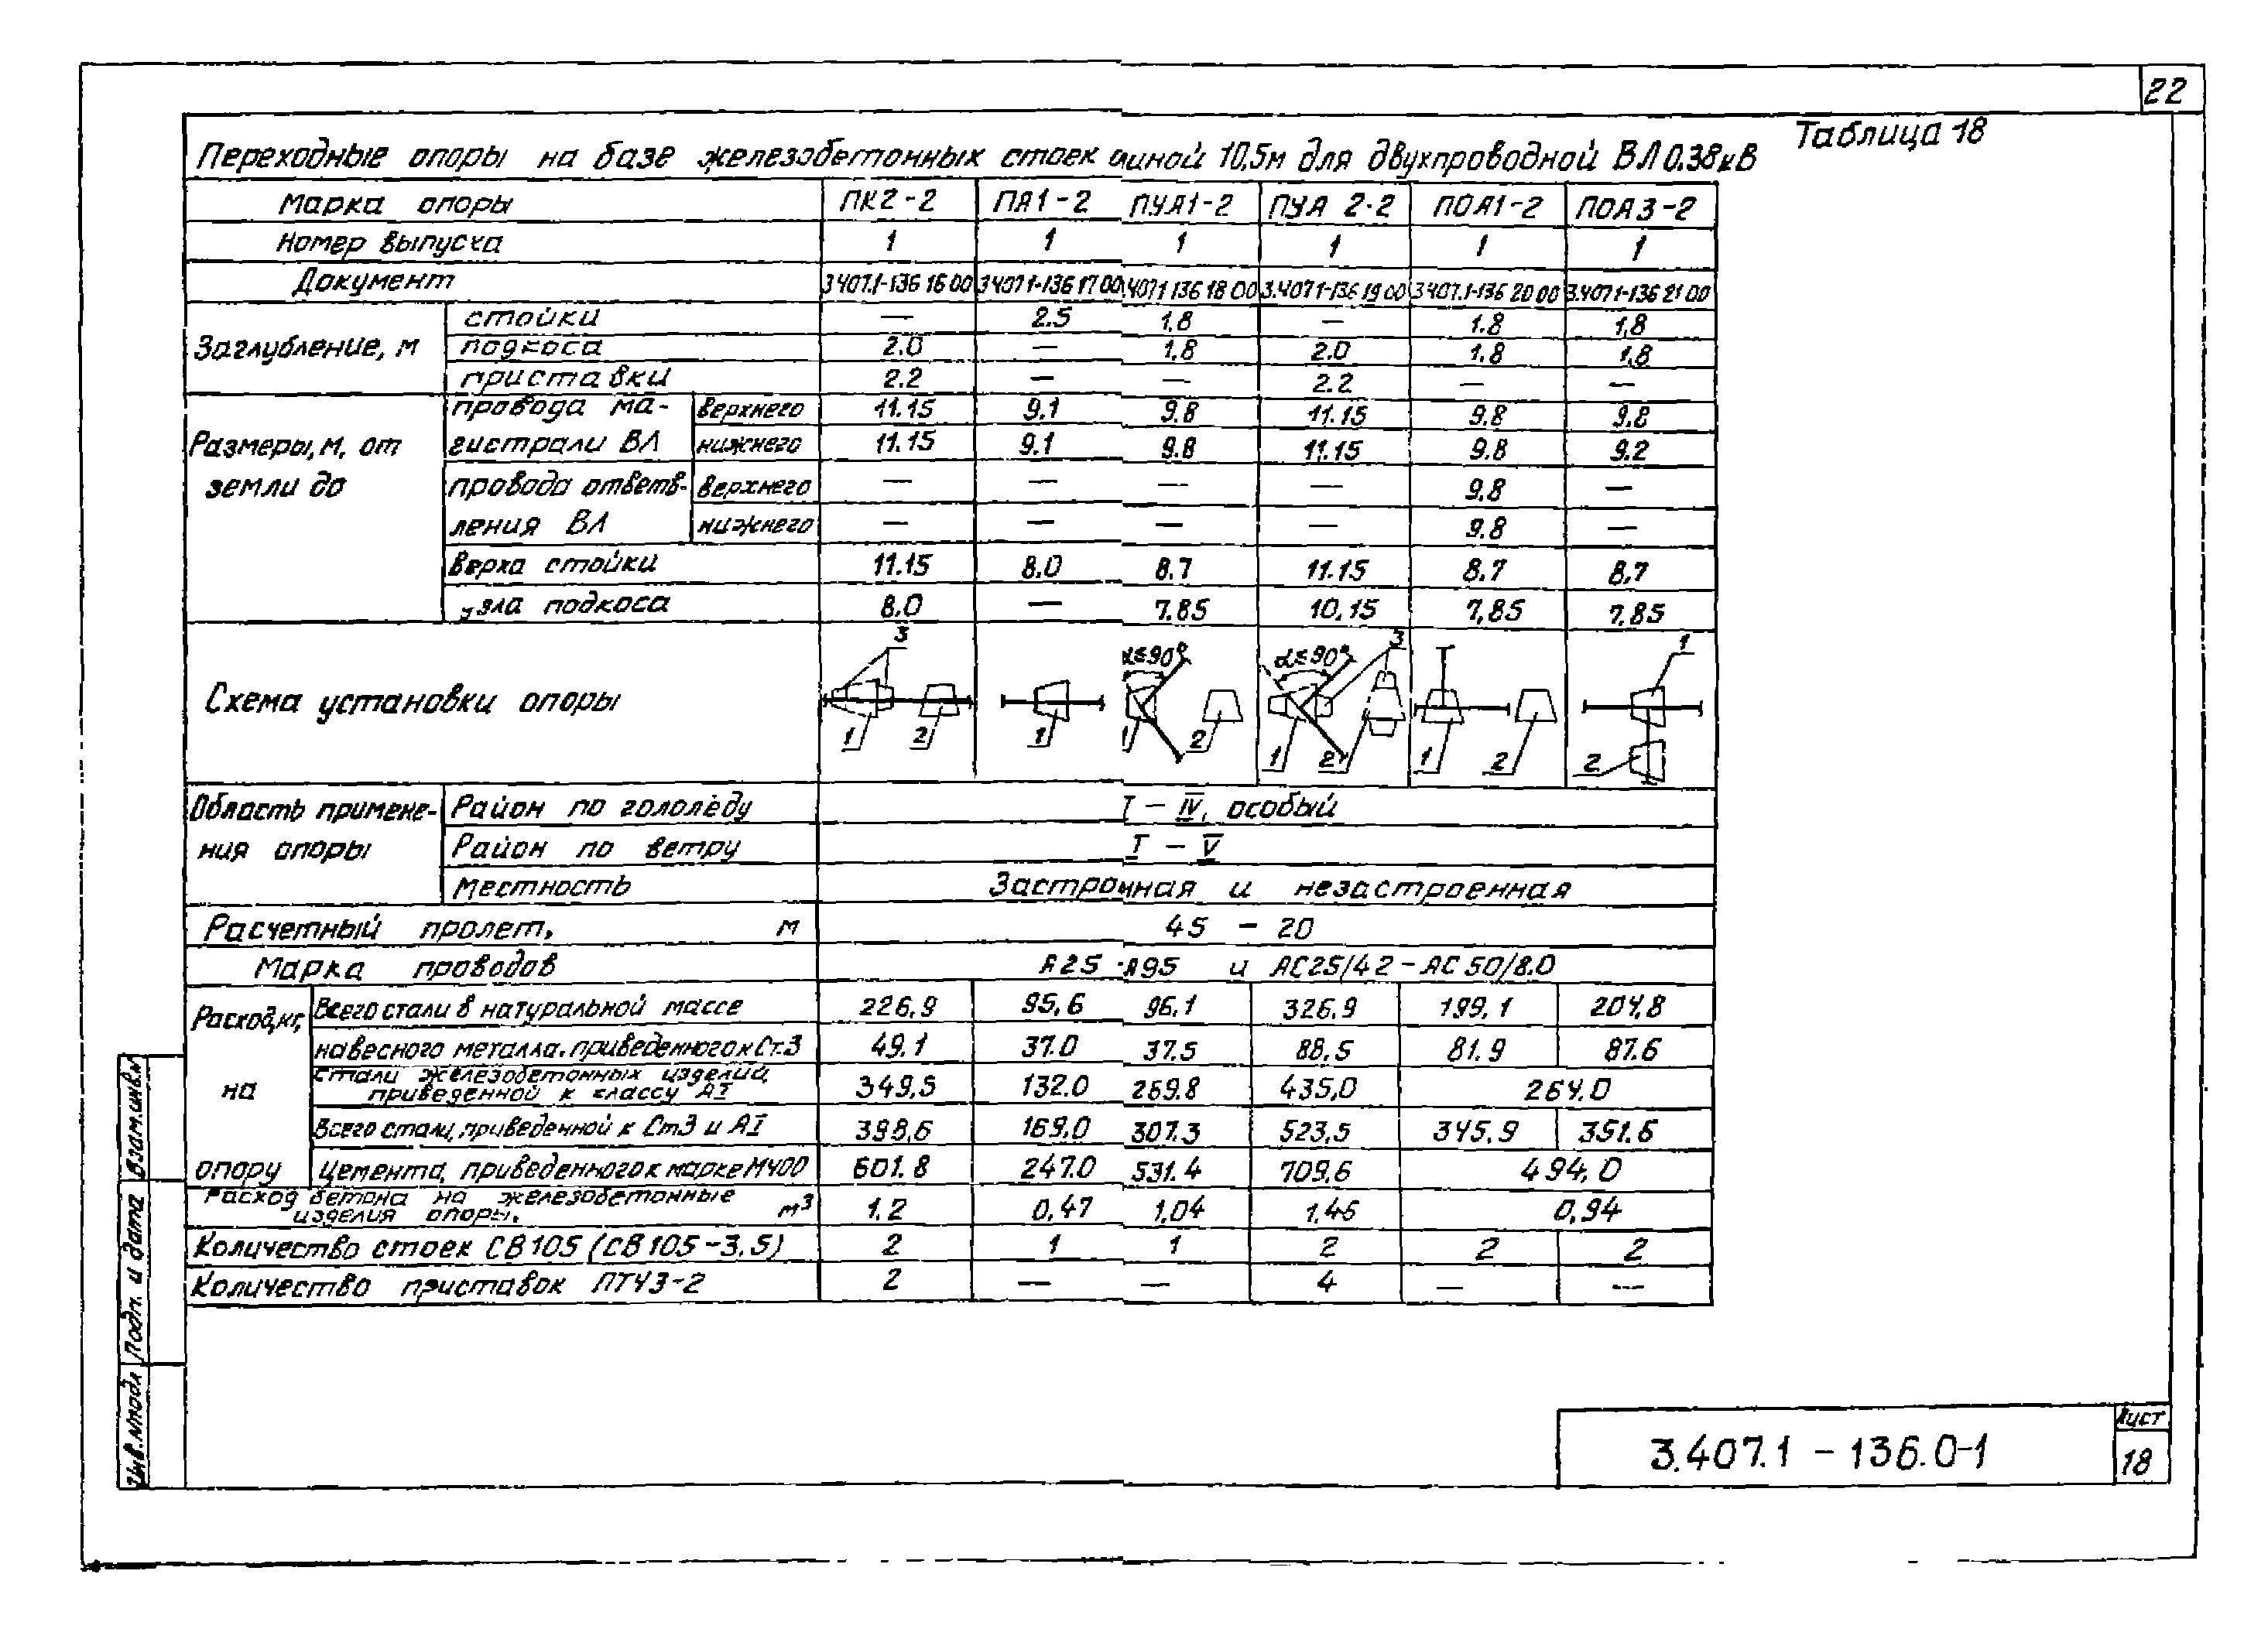 22
Таблица 18
Переходные опоры на базе железобетонных стоек длиной 10,5м для двухпроводной ВЛ 0.38кВ
Марка опоры ПК2-2 ПА1-2 ПУА1-2 ПУА 2-2 ПОА1-2 ПОА3-2
Номер выпуска 1 1 1 1 1 1
Документ 3.407.1-136 16 00 3.407.1-136 17 00 3.407.1-136 18 00 3.407.1-136 19 00 3.407.1-136 20 00 3.407.1-136 21 00
Заглубление, м
стойки — 2.5 1.8 — 1.8 1,8
подкоса 2.0 — 1,8 2.0 1.8 1,8
приставки 2.2 — — 2.2 — —
Размеры, м, от земли до
провода магистрали ВЛ
верхнего 11.15 9.1 9.8 11.15 9.8 9.8
нижнего 11.15 9.1 9.8 11.15 9.8 9.2
провода ответвления ВЛ
верхнего — — — — 9.8 —
нижнего — — — — 9.8 —
верха стойки 11.15 8.0 8.7 11.15 8.7 8,7
узла подкоса 8.0 — 7.85 10.15 7,85 7,85
Схема установки опоры
3 1 2
1
α≤90° 1 2
α≤90° 3 1 2
1 2
1 2
Область применения опоры
Район по гололёду I – IV, особый
Район по ветру I – V
Местность Застроенная и незастроенная
Расчетный пролет, м 45 – 20
Марка проводов А25-А95 и АС25/4.2-АС50/8.0
Расход, кг, на опору
Всего стали в натуральной массе 226,9 95,6 96,1 326,9 199,1 204,8
навесного металла, приведенного к Ст.3 49.1 37.0 37.5 88,5 81.9 87.6
Стали железобетонных изделий, приведенной к классу АI 349,5 132.0 269.8 435,0 264.0
Всего стали, приведенной к Ст3 и АI 398,6 169,0 307.3 523,5 345.9 351.6
Цемента, приведенного к марке М400 601.8 247.0 531.4 709,6 494,0
Расход бетона на железобетонные изделия опоры, м³ 1.2 0,47 1,04 1.46 0,94
Количество стоек СВ105 (СВ105-3.5) 2 1 1 2 2 2
Количество приставок ПТ43-2 2 — — 4 — —
Взам.инв.№
Подп. и дата
Инв.№подл
3.407.1 - 136.0-1
Лист
18